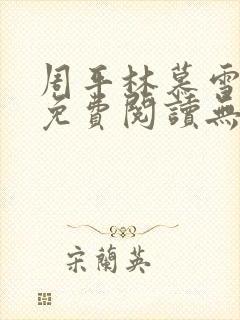 周平林慕雪
免費閱讀無
宋蘭英